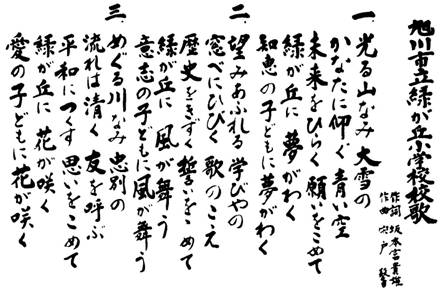 旭川市立緑が丘小学校校歌
作詞 坂本富貴雄
作曲 宍戸
一、光る山なみ 大雪の
かなたに仰ぐ 青い空
未来をひらく 願いをこめて
緑が丘に 夢がわく
知恵の子どもに夢がわく
二、望みあふれる 学びやの
窓べにひびく 歌のこえ
歴史をきずく 誓いをこめて
緑が丘に 風が舞う
意志の子どもに風が舞う
三、めぐる川なみ 忠別の
流れは清く 友を呼ぶ
平和につくす 思いをこめて
緑が丘に 花が咲く
愛の子どもに花が咲く